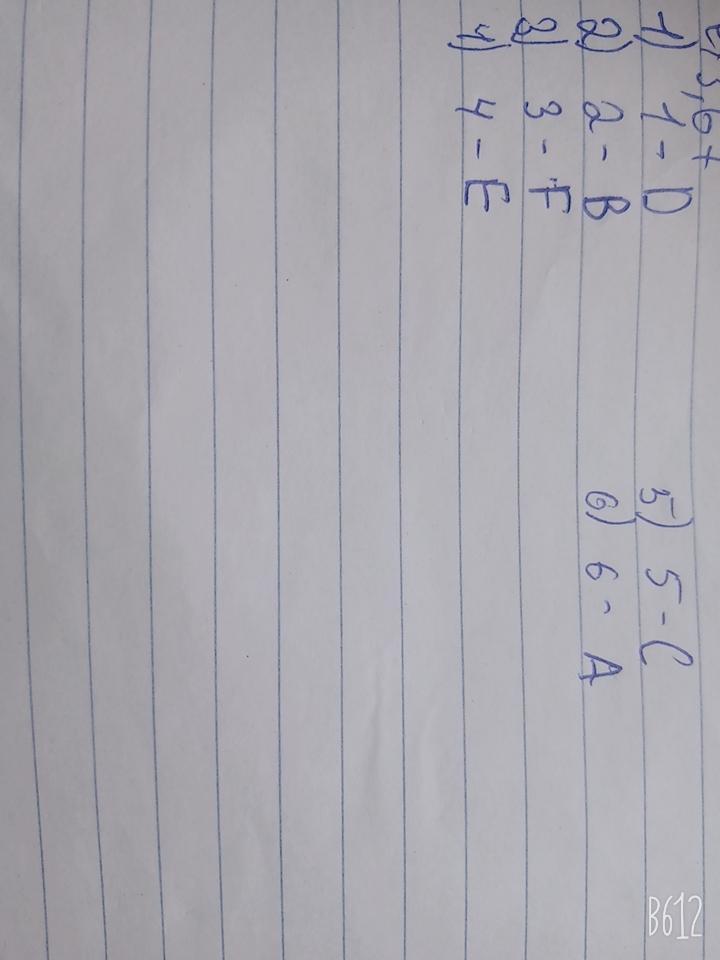 1) 1 - D
2) 2 - B
3) 3 - F
4) 4 - E
5) 5 - C
6) 6 - A
B612